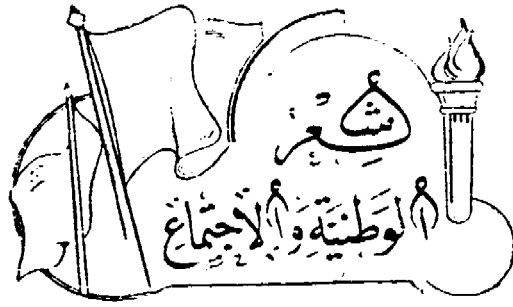 شِعْرُ
الوَطَنِيَّةِ وَالاِجْتِمَاعِ